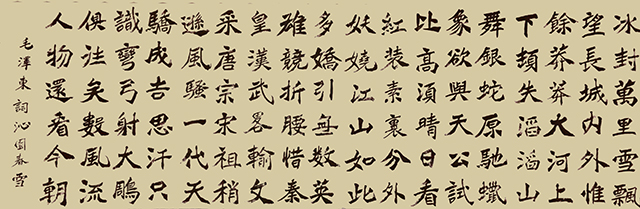 冰封萬里雪飄
望長城内外惟
餘莽莽大河上
下頓失滔滔山
舞銀蛇原馳蠟
象欲與天公試
比高須晴日看
紅装素裹分外
妖嬈江山如此
多嬌引無數英
雄競折腰惜秦
皇漢武畧輸文
采唐宗宋祖稍
遜風騷一代天
驕成吉思汗只
識彎弓射大鵰
俱往矣數風流
人物還看今朝
毛澤東詞沁園春雪